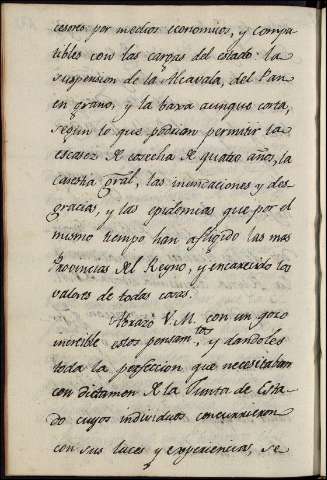 cesores por medios economicos, y compa
tibles con las cargas del estado: la
suspension de la Alcavala, del Pan
en grano, y la baxa aunque corta,
segun lo que podian permitir la
escasez de cosecha de quatro años, la
carestia gral, las inundaciones y des
gracias, y las epidemias que por el
mismo tiempo han afligido las mas
Provincias del Reyno, y encarecido los
valores de todas cosas.
Abrazo V. M. con un gozo
increible estos pensam.tos, y dandoles
toda la perfeccion que necesitaban
con dictamen de la Junta de Esta
do cuyos individuos concurrieron
con sus luces y experiencias, se